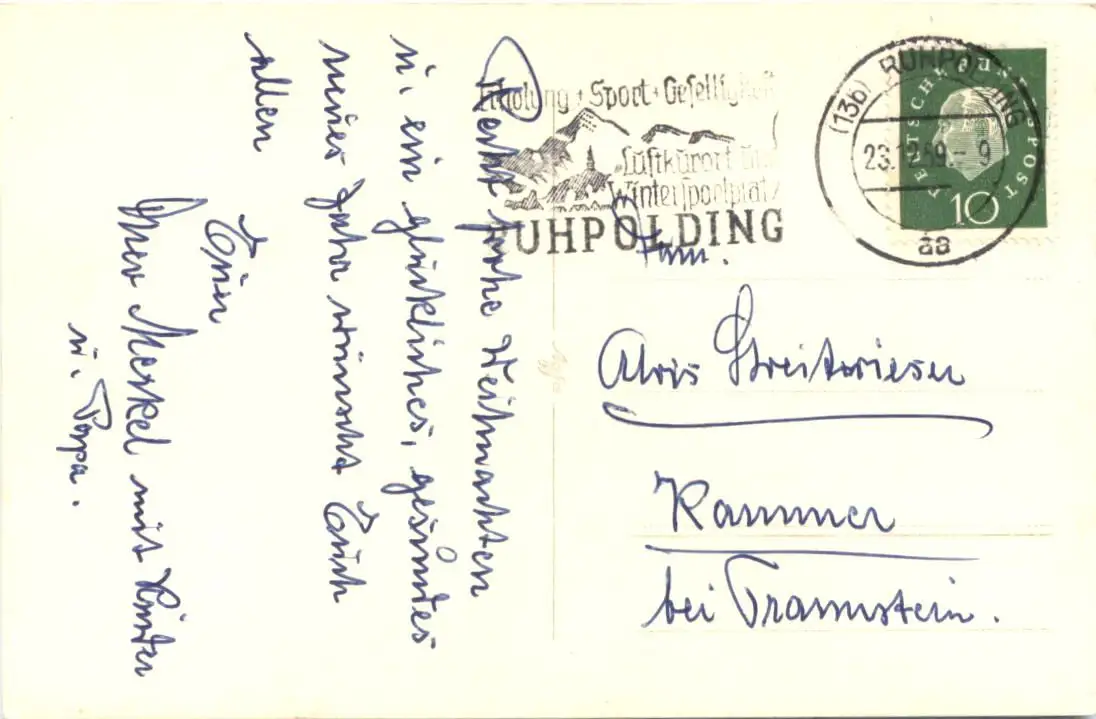 Recht frohe Weihnachten
u. ein glückliches, gesundes
neues Jahr wünscht Euch
allen
Euer
Merkel mit Kinder
u. Papa.
Erholung + Sport + Geselligkeit
Luftkurort und
Wintersportplatz
RUHPOLDING
(13b) RUHPOLDING
23.12.59.- 9
aa
DEUTSCHE BUNDESPOST
10
Fam.
Alois Streitwieser
Kammer
bei Traunstein.